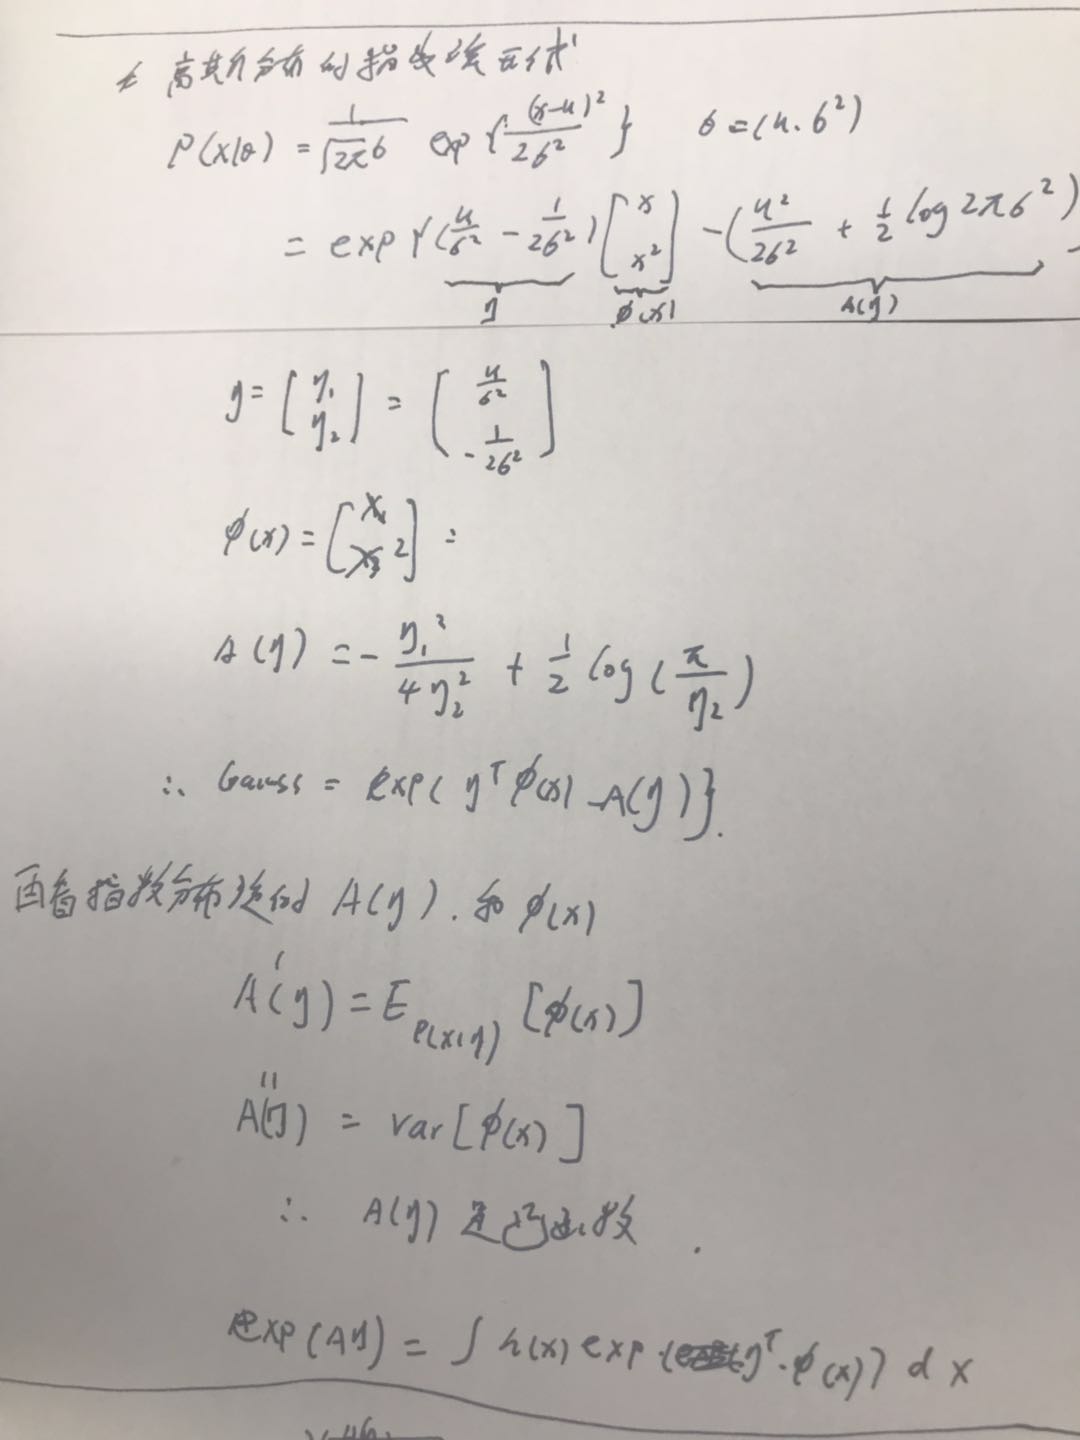 高斯分布的指数族形式
P(x|θ) = 1/(√2π σ) exp{ (x-μ)²/2σ² } θ=(μ.σ²)
= exp{(μ/σ² - 1/2σ²)[x x²] -(μ²/2σ² + 1/2 log 2πσ²)
η φ(x) A(η)
η = [η₁ η₂] = (μ/σ² -1/2σ²)
φ(x) = [x x²] =
A(η) = - η₁²/4η₂² + 1/2 log(π/η₂)
∴ Gauss = exp( ηᵀ φ(x) - A(η)}.
再看指数分布族的 A(η). 和 φ(x)
A'(η) = E P(x|η) [φ(x)]
A''(η) = var[φ(x)]
∴ A(η) 是凸函数 .
exp(Aη) = ∫ h(x) exp (ηᵀ·φ(x)) dx